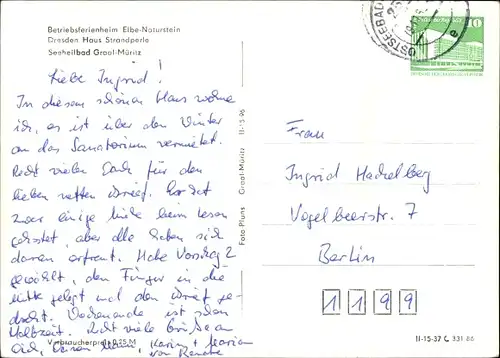 Betriebsferienheim Elbe-Naturstein
Dresden Haus Strandperle
Seeheilbad Graal-Müritz
Liebe Ingrid!
In diesem schönen Haus wohne
ich, es ist über den Winter
an das Sanatorium vermietet.
Recht vielen Dank für den
lieben netten Brief. Er hat
zwar einige Mühe beim Lesen
gekostet, aber alle haben sich
daran erfreut. Habe Vorschlag 2
gewählt, den Finger in die
Mitte gelegt und den Brief ge-
dreht. Wochenende ist schon
Halbzeit. Recht viele Grüße an
Dich, Karin + Marion
von Renate
Verbraucherpreis 0,25 M
Foto Pluns Graal-Müritz II-15-96
OSTSEEBAD
10
Frau
Ingrid Hackelberg
Vogelbeerstr. 7
Berlin
1 1 9 9
II-15-37 C 331 86